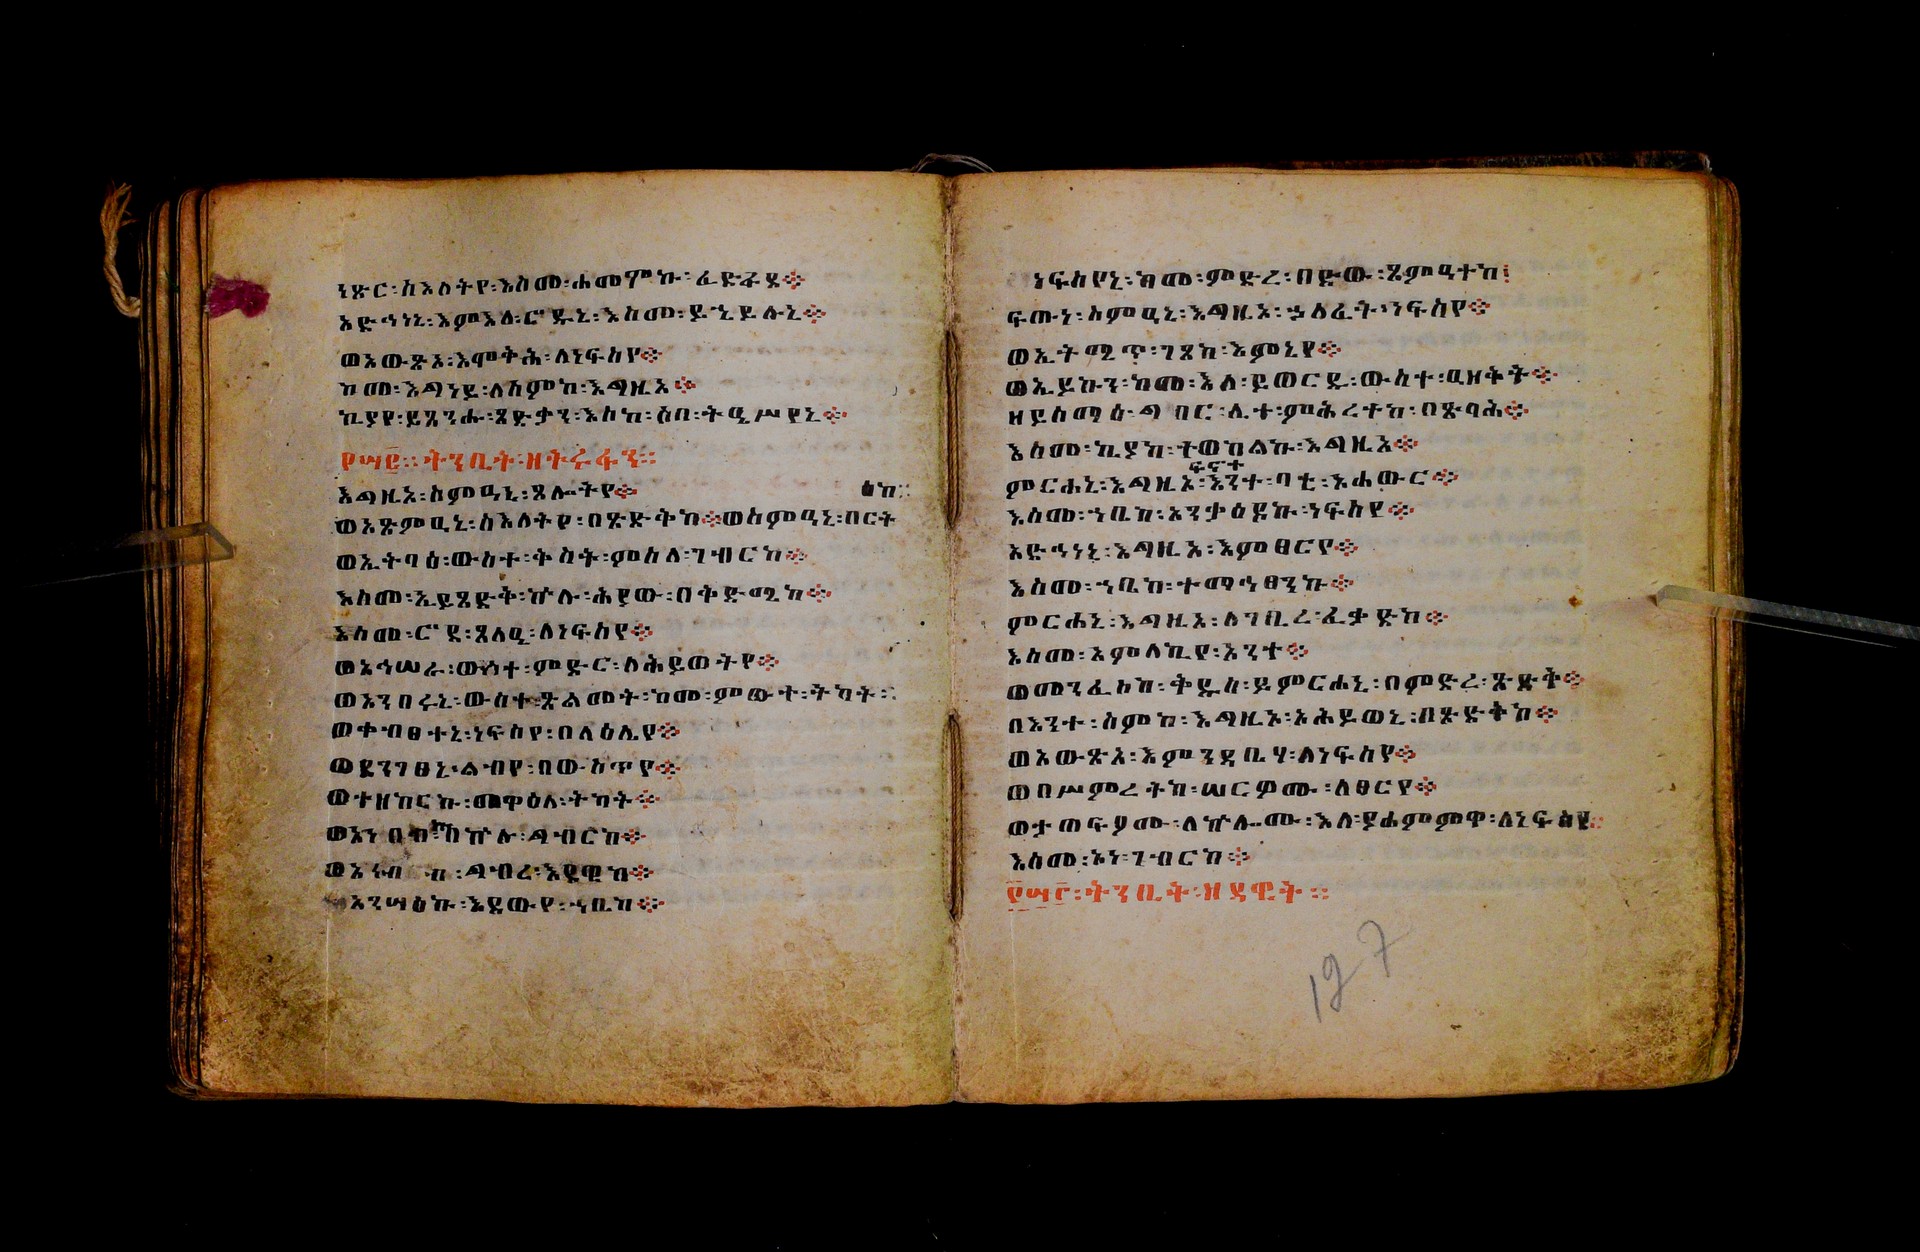 ነጽር፡ስእለትየ፡እስመ፡ሐመምኩ፡ፈድፋደ፨
አድኅነኒ፡እምእለ፡ሮዱኒ፡እስመ፡ይኄይሉኒ፨
ወአውጽኣ፡እሞቅሕ፡ለነፍስየ፨
ከመ፡እግነይ፡ለስምከ፡እግዚአ፨
ኪያየ፡ይጸንሑ፡ጻድቃን፡እስከ፡ሶበ፡ትዔሥየኒ፨
፻፵፪፡፡ትንቢት፡ዘትሩፋን፡፡
እግዚኦ፡ስምዓኒ፡ጸሎትየ፨ ዕከ፡፡
ወአጽምዐኒ፡ስእለትየ፡በጽድቅከ፨ወስምዓኒ፡በርት
ወኢትባዕ፡ውስተ፡ቅስት፡ምስለ፡ገብርከ፨
እስመ፡ኢይጸድቅ፡ኵሉ፡ሕያው፡በቅድሜከ፨
እስመ፡ሮደ፡ጸላዒ፡ለነፍስየ፨
ወኣኅሠራ፡ውስተ፡ምድር፡ለሕይወትየ፨
ወአንበሩኒ፡ውስተ፡ጽልመት፡ከመ፡ምውተ፡ትካት፡፡
ወቀብፀተኒ፡ነፍስየ፡በላዕሌየ፨
ወደንገፀኒ፡ልብየ፡በውስጥየ፨
ወተዘከርኩ፡መዋዕለ፡ትካት፨
ወአነበብኩ፡በኵሉ፡ግብርከ፨
ወአነብ ብ፡ግብረ፡እደዊከ፨
ወአንሣዕኩ፡እደውየ፡ኀቤከ፨
ነፍስየኒ፡ከመ፡ምድረ፡በድው፡ጸምዓተከ፡
ፍጡነ፡ስምዐኒ፡እግዚኦ፡ኃለፈት፡ነፍስየ፨
ወኢትሚጥ፡ገጸከ፡እምኒየ፨
ወኢይኩን፡ከመ፡እለ፡ይወርዱ፡ውስተ፡ዐዘቅት፨
ዘይስማዕ፡ግበር፡ሊተ፡ምሕረተከ፡በጽባሕ፨
እስመ፡ኪያከ፡ተወከልኩ፡እግዚአ፨
ፍኖተ
ምርሐኒ፡እግዚኦ፡እንተ፡ባቲ፡አሐውር፨
እስመ፡ኀቤከ፡አንቃዕደኩ፡ነፍስየ፨
አድኅነኒ፡እግዚኦ፡እምፀርየ፨
እስመ፡ኀቤከ፡ተማኅፀንኩ፨
ምርሐኒ፡እግዚኦ፡ለገቢረ፡ፈቃድከ፨
እስመ፡አምላኪየ፡አንተ፨
ወመንፈስከ፡ቅዱስ፡ይምርሐኒ፡በምድረ፡ጽድቅ፨
በእንተ፡ስምከ፡እግዚኦ፡አሕይወኒ፡በጽድቅከ፨
ወአውጽአ፡እምንዳቤሃ፡ለነፍስየ፨
ወበሥምረትከ፡ሠርዎሙ፡ለፀርየ፨
ወታጠፍዖሙ፡ለኵሎሙ፡እለ፡ያሐምምዋ፡ለነፍስየ፡፡
እስመ፡አነ፡ገብርከ፨
፻፵፫፡ትንቢት፡ዘዳዊት፡፡
127